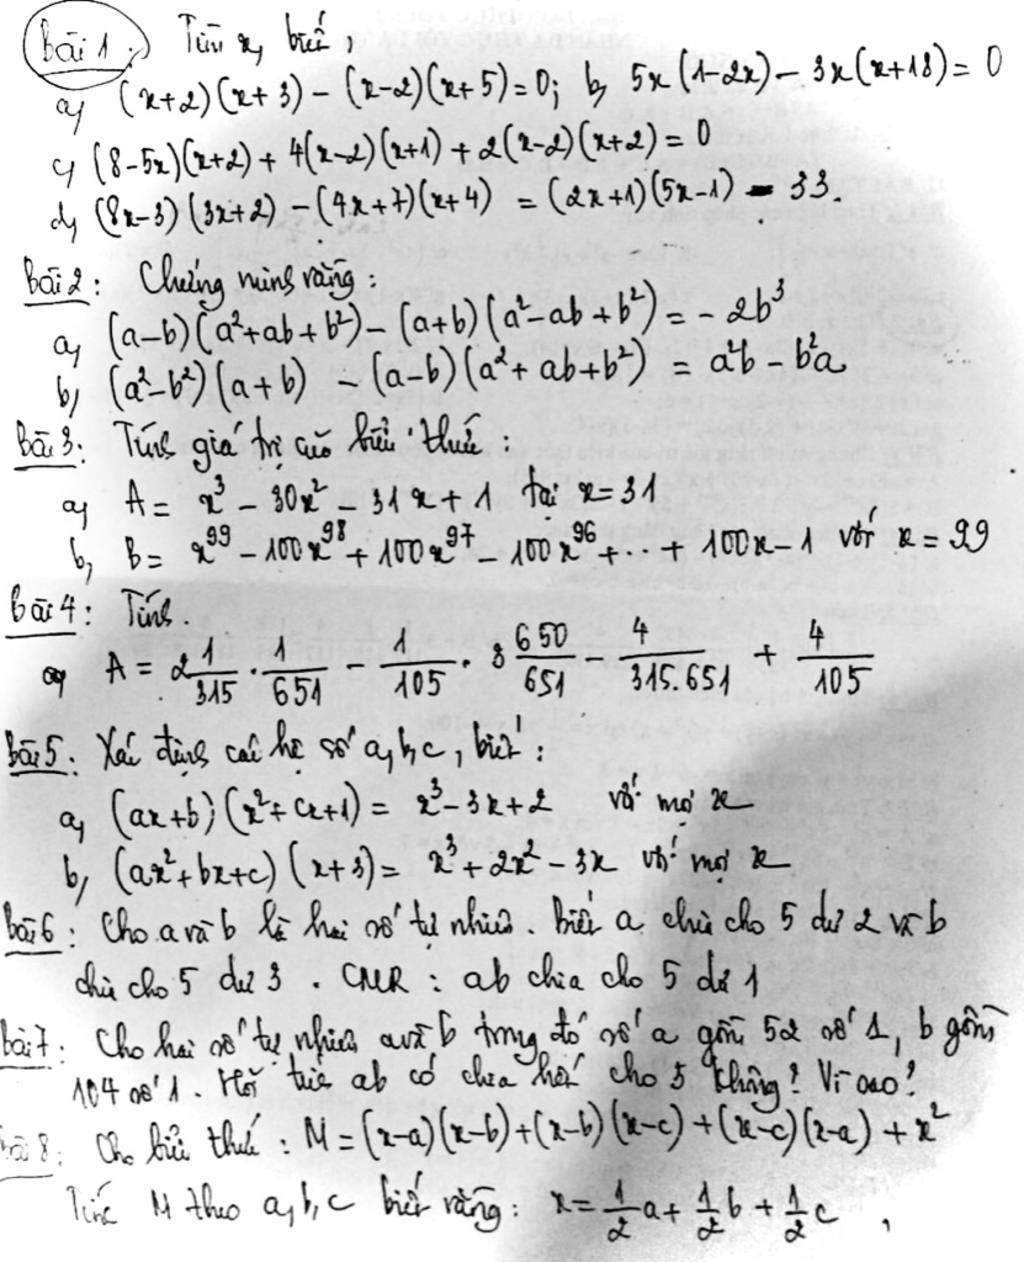 Bài 1: Tìm x, biết:
a, (x+2)(x+3) - (x-2)(x+5) = 0; b, 5x(1-2x) - 3x(x+18) = 0
c, (8-5x)(x+2) + 4(x-2)(x+1) + 2(x-2)(x+2) = 0
d, (8x-3)(3x+2) - (4x+7)(x+4) = (2x+1)(5x-1) - 33.
Bài 2: Chứng minh rằng:
a, (a-b)(a²+ab+b²) - (a+b)(a²-ab+b²) = -2b³
b, (a²-b²)(a+b) - (a-b)(a²+ab+b²) = a²b - b²a
Bài 3: Tính giá trị của biểu thức:
a, A = x³ - 30x² - 31x + 1 tại x = 31
b, B = x⁹⁹ - 100x⁹⁸ + 100x⁹⁷ - 100x⁹⁶ + ... + 100x - 1 với x = 99
Bài 4: Tính.
a, A = 2 1/315 . 1/651 - 1/105 . 3 650/651 - 4/315.651 + 4/105
Bài 5: Xác định các hệ số a, b, c, biết:
a, (ax+b)(x²+cx+1) = x³ - 3x + 2 với mọi x
b, (ax²+bx+c)(x+3) = x³ + 2x² - 3x với mọi x
Bài 6: Cho a và b là hai số tự nhiên. Biết a chia cho 5 dư 2 và b
chia cho 5 dư 3. CMR: ab chia cho 5 dư 1
Bài 7: Cho hai số tự nhiên a và b trong đó số a gồm 52 số 1, b gồm
104 số 1. Hỏi tích ab có chia hết cho 3 không? Vì sao?
Bài 8: Cho biểu thức: M = (x-a)(x-b) + (x-b)(x-c) + (x-c)(x-a) + x²
Tính M theo a, b, c biết rằng: x = 1/2 a + 1/2 b + 1/2 c,